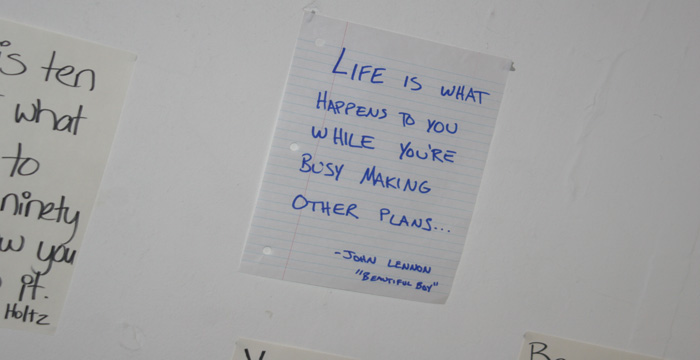 is ten
what
to
ninety
you
it.
Holtz
LIFE IS WHAT
HAPPENS TO YOU
WHILE YOU'RE
BUSY MAKING
OTHER PLANS...
-JOHN LENNON
"BEAUTIFUL BOY"